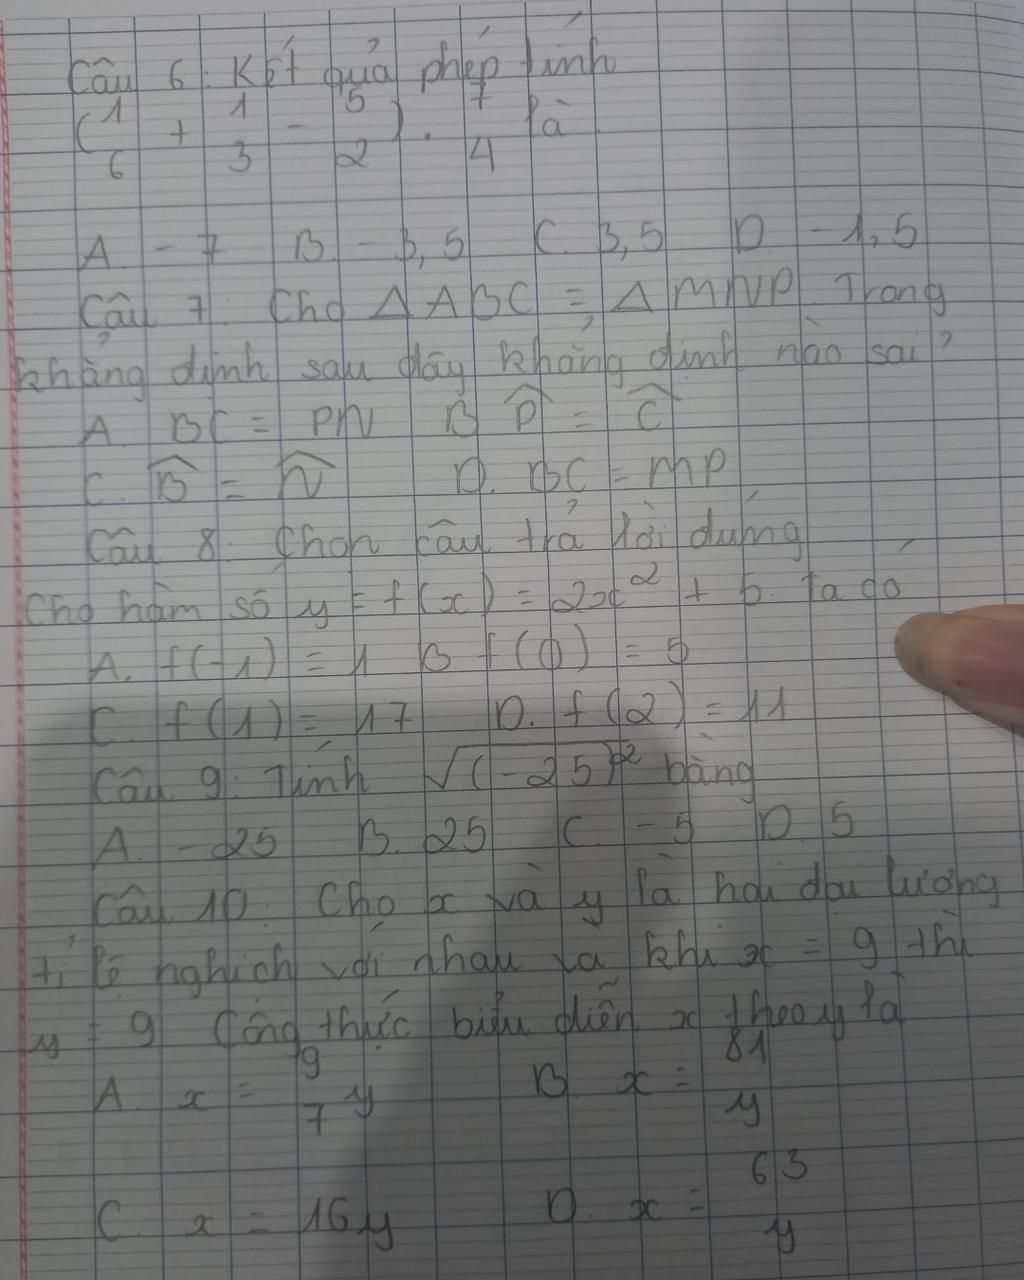 Câu 6. Kết quả phép tính
(1/6 + 1/3 - 5/2) . 7/4 là
A. - 7 B. - 3,5 C. 3,5 D. - 1,5
Câu 7. Cho ΔABC = ΔMNP. Trong
khẳng định sau đây khẳng định nào sai?
A. BC = PN B. P̂ = Ĉ
C. B̂ = N̂ D. BC = MP
Câu 8. Chọn câu trả lời đúng
Cho hàm số y = f(x) = 2x² + 5. Ta có
A. f(-1) = 1 B. f(0) = 5
C. f(1) = 17 D. f(2) = 11
Câu 9: Tính √(-25)² bằng
A. - 25 B. 25 C. - 5 D. 5
Câu 10. Cho x và y là hai đại lượng
tỉ lệ nghịch với nhau và khi x = 9 thì
y = 9 Công thức biểu diễn x theo y là
A. x = 9/7 y B. x = 81/y
C. x = 16y D. x = 63/y